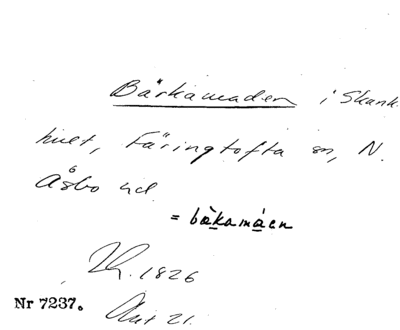 Bärkamaden i Skank-
hult, Färingtofta sn, N.
Åsbo hd
= bàkamáen
1826
Nr 7237.
21.